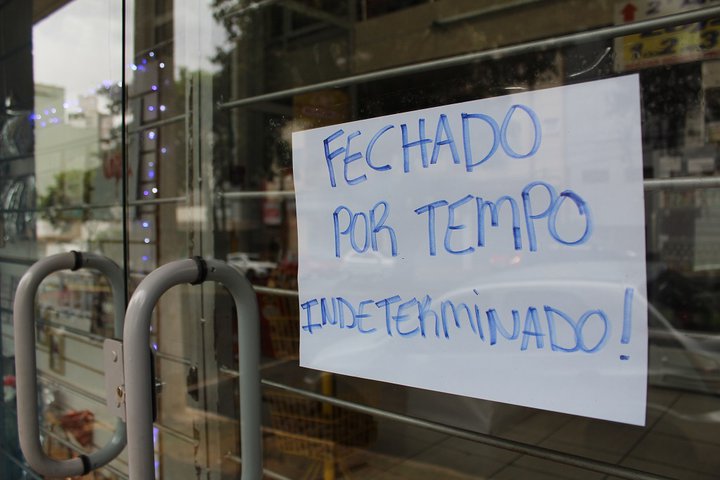 FEChADO
POR TEMPO
INDETERMINADO!